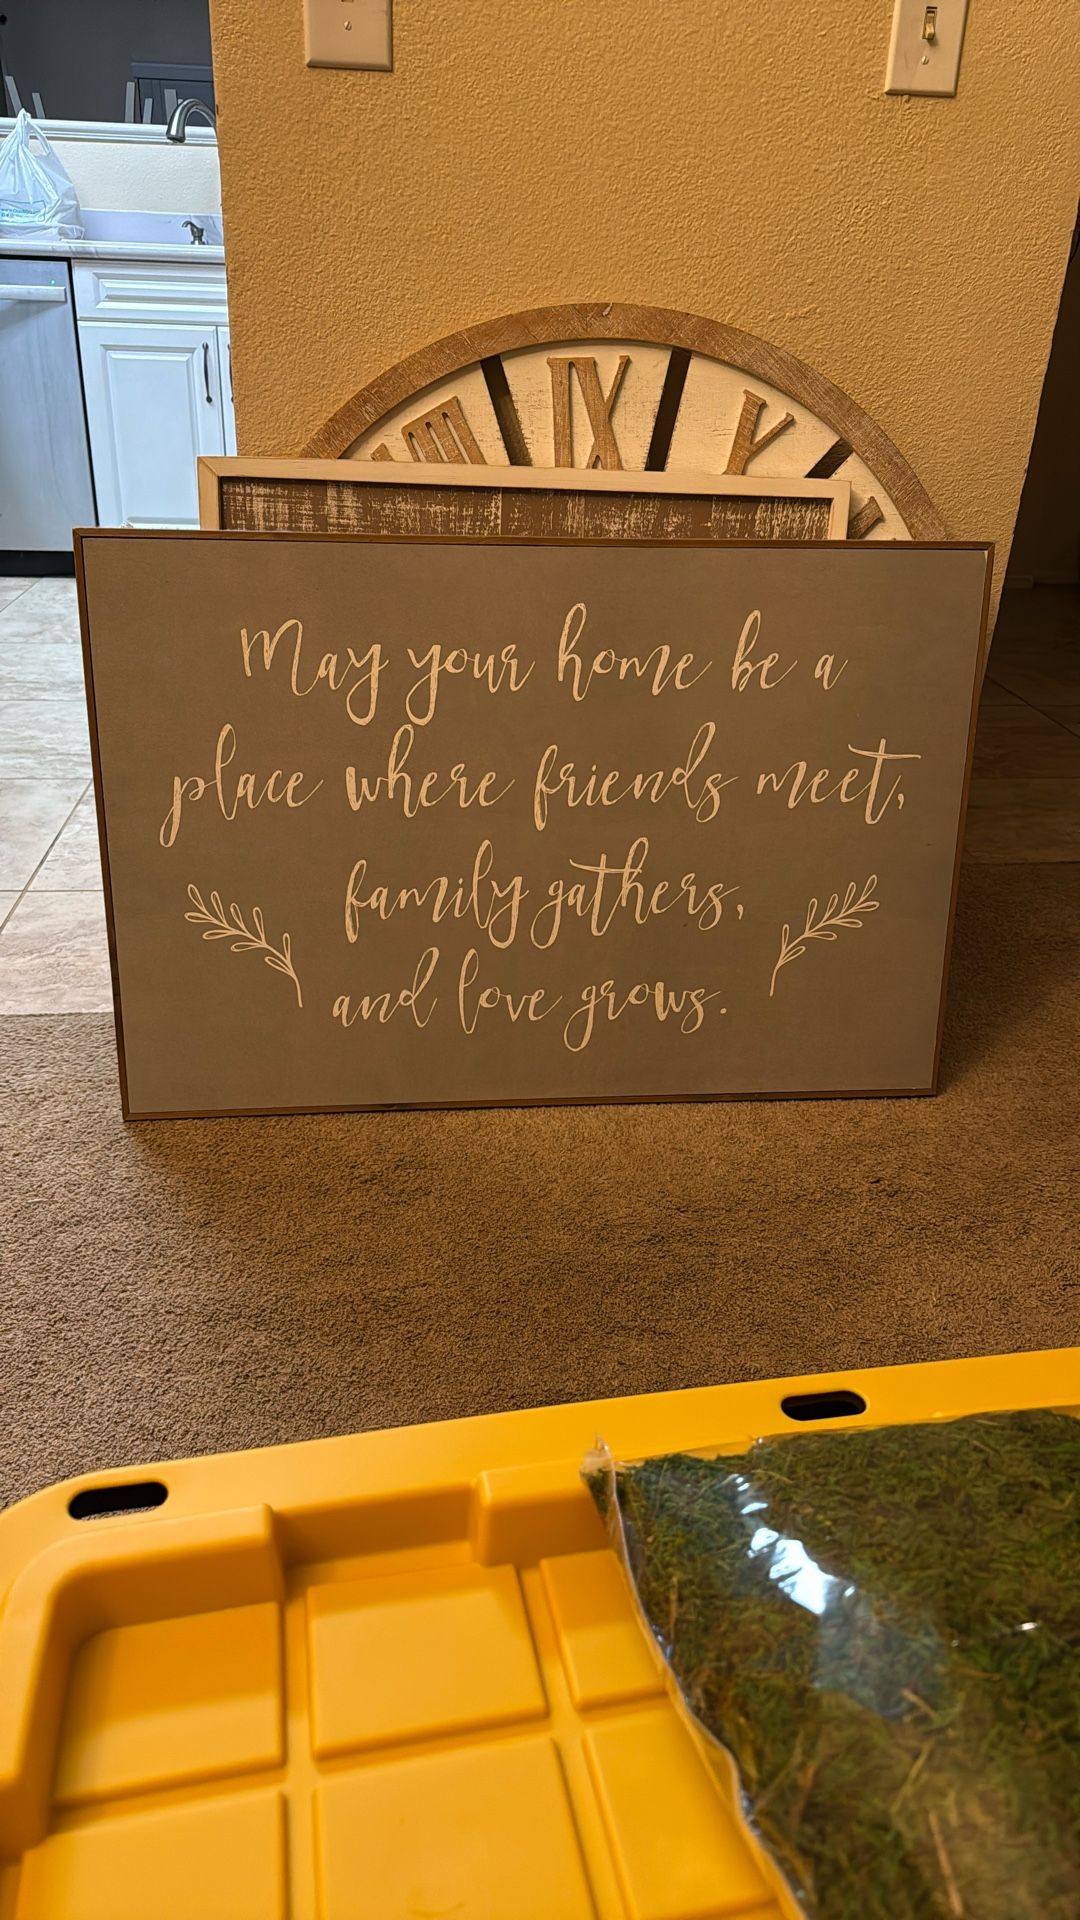 IX
May your home be a
place where friends meet,
family gathers,
and love grows.